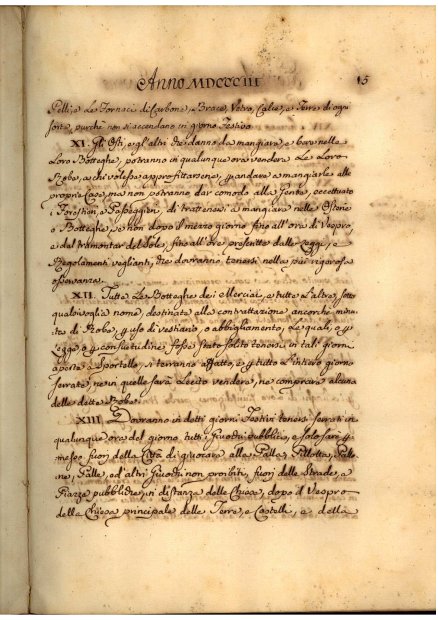 Anno MDCCCIII 15
Pelli, e Le Fornaci di Carbone, Brace, Vetro, Calce, e Terre di ogni
sorte, purchè non si accendano in giorno Festivo.
XI. Gli Osti, e gl'altri che danno da mangiare, e bere nelle
Loro Botteghe, potranno in qualunque ora vendere Le Loro
Robe, a chi volesse approfittarsene, p andare a mangiarle alle
proprie Case, ma non potranno dar comodo alla Gente, eccettuati
i Forestieri, e Passeggieri, di trattenersi a mangiare nelle Osterie
o Botteghe, se non dopo il mezzo giorno fino all'ore di Vespro,
e dal tramontar del Sole, fino all'ore prescritte dalle Leggi, e
Regolamenti veglianti, che dovranno tenersi nella più rigorosa
osservanza.
XII. Tutte Le Botteghe dei Merciai, e tutte L'altre, sotto
qualsivoglia nome, destinate alla contrattazione ancorchè minu-
ta di Robe, p uso di vestiario, o abbigliamento, Le quali, o p
Legge, o p consuetudine fosse stato solito tenersi in tali giorni
aperte a Sportello, si terranno affatto, e p tutto L'intiero giorno
serrate, ne in quelle sarà Lecito vendere, ne comprare alcuna
delle dette Robe.
XIII. Dovranno in detti giorni Festivi tenersi serrati in
qualunque ora del giorno, tutti i Giuochi pubblici, e solo sarà p-
messo fuori della Città di giuocare alla Palla, Pillotta, Palle
ne, Palle, ed altri Giuochi non proibiti, fuori delle Strade, e
Piazze pubbliche, in distanza delle Chiese, dopo il Vespro
della Chiesa principale delle Terre, e Castelli, e della